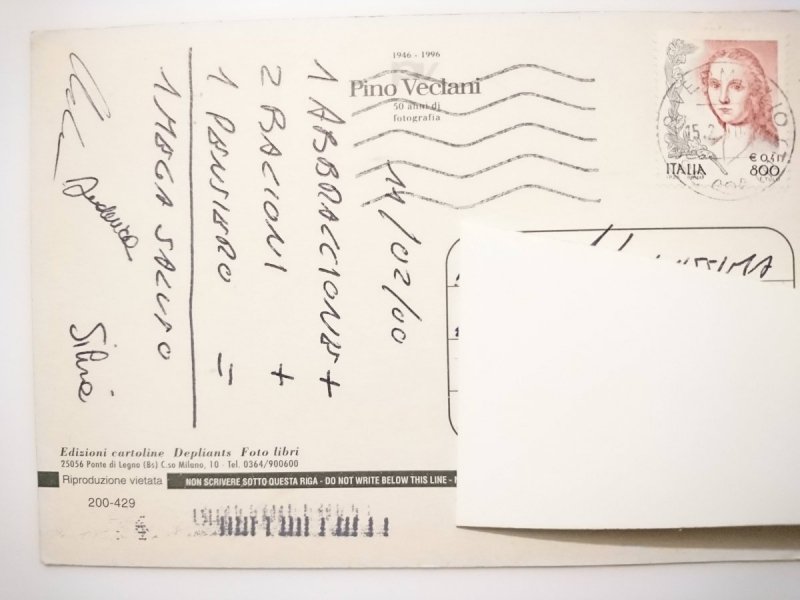 1946 - 1996
Pino Veclani
50 anni di
fotografia
ITALIA
800
14/02/00
1 ABBRACCIONE +
2 BACIONI +
1 PENSIERO =
1 MEGA SALUTO
Federica
Silvia
Edizioni cartoline Depliants Foto libri
25056 Ponte di Legno (Bs) C.so Milano, 10 - Tel. 0364/900600
Riproduzione vietata
NON SCRIVERE SOTTO QUESTA RIGA - DO NOT WRITE BELOW THIS LINE -
200-429